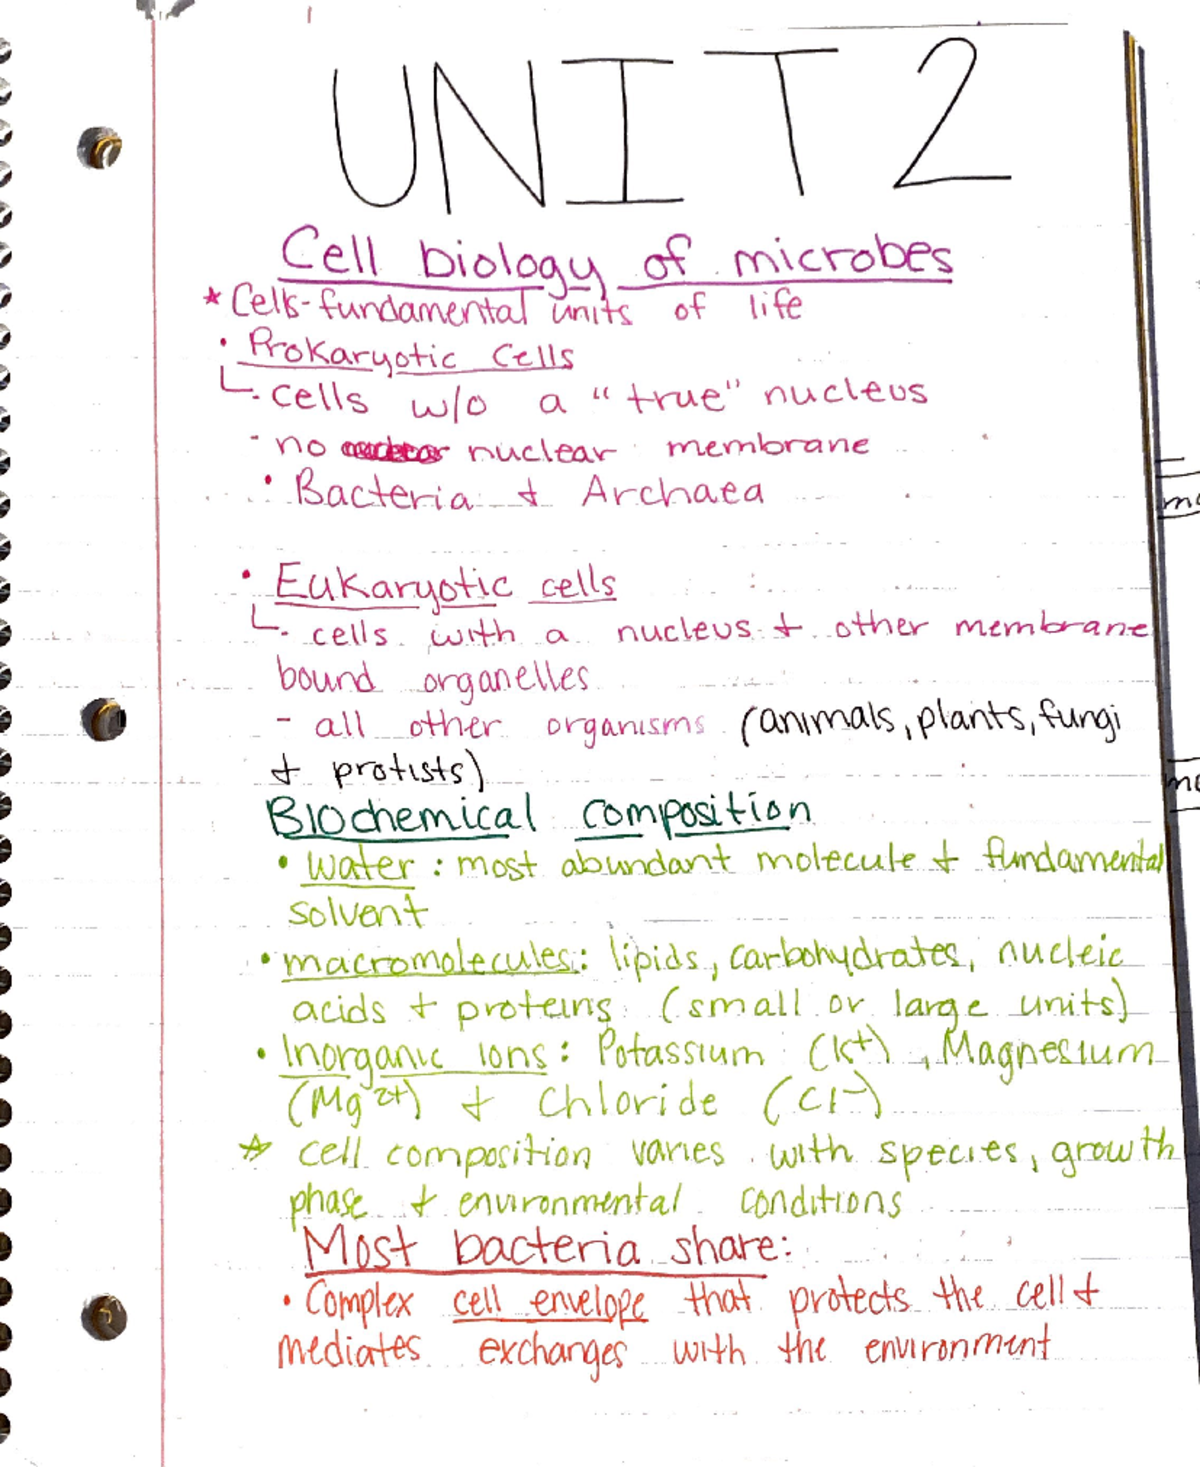 UNIT 2
Cell biology of microbes
* Cells-fundamental units of life
• Prokaryotic Cells
↳ cells w/o a "true" nucleus
- no nuclear membrane
• Bacteria + Archaea
• Eukaryotic cells
↳ cells with a nucleus + other membrane
bound organelles
- all other organisms (animals, plants, fungi
+ protists)
Biochemical composition
• water: most abundant molecule + fundamental
solvent
• macromolecules: lipids, carbohydrates, nucleic
acids + proteins (small or large units)
• Inorganic ions: Potassium (K+), Magnesium
(Mg2+) + Chloride (Cl-)
☆ cell composition varies with species, growth
phase + environmental conditions
Most bacteria share:
• Complex cell envelope that protects the cell +
mediates exchanges with the environment